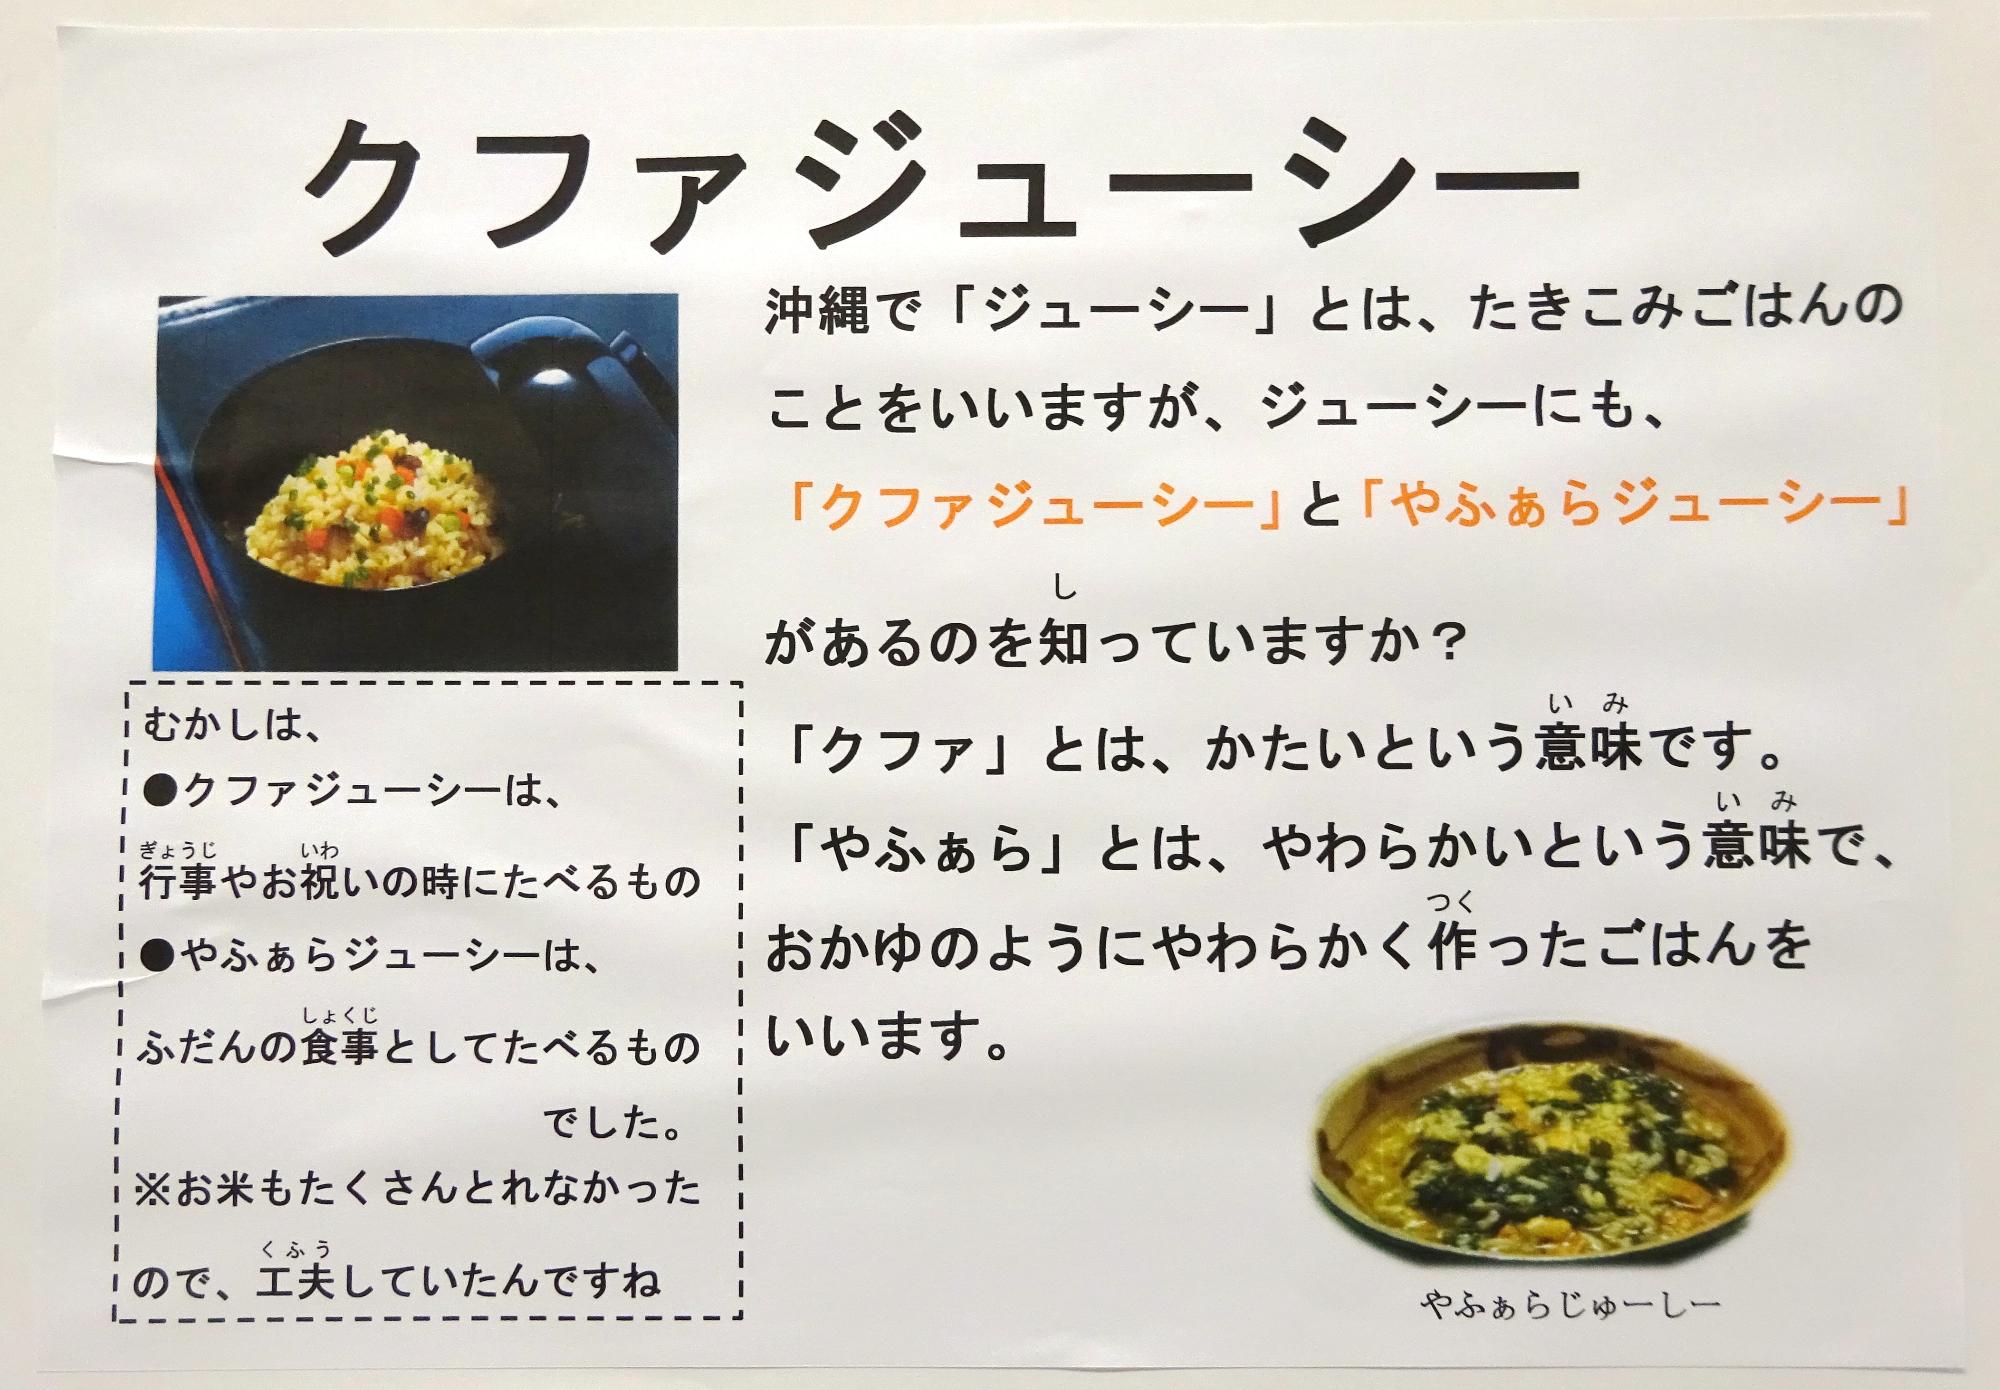 クファジューシー
沖縄で「ジューシー」とは、たきこみごはんの
ことをいいますが、ジューシーにも、
「クファジューシー」と「やふぁらジューシー」
し
があるのを知っていますか？
いみ
「クファ」とは、かたいという意味です。
いみ
「やふぁら」とは、やわらかいという意味で、
つく
おかゆのようにやわらかく作ったごはんを
いいます。
やふぁらじゅーしー
むかしは、
●クファジューシーは、
ぎょうじ いわ
行事やお祝いの時にたべるもの
●やふぁらジューシーは、
しょくじ
ふだんの食事としてたべるもの
でした。
※お米もたくさんとれなかった
くふう
ので、工夫していたんですね